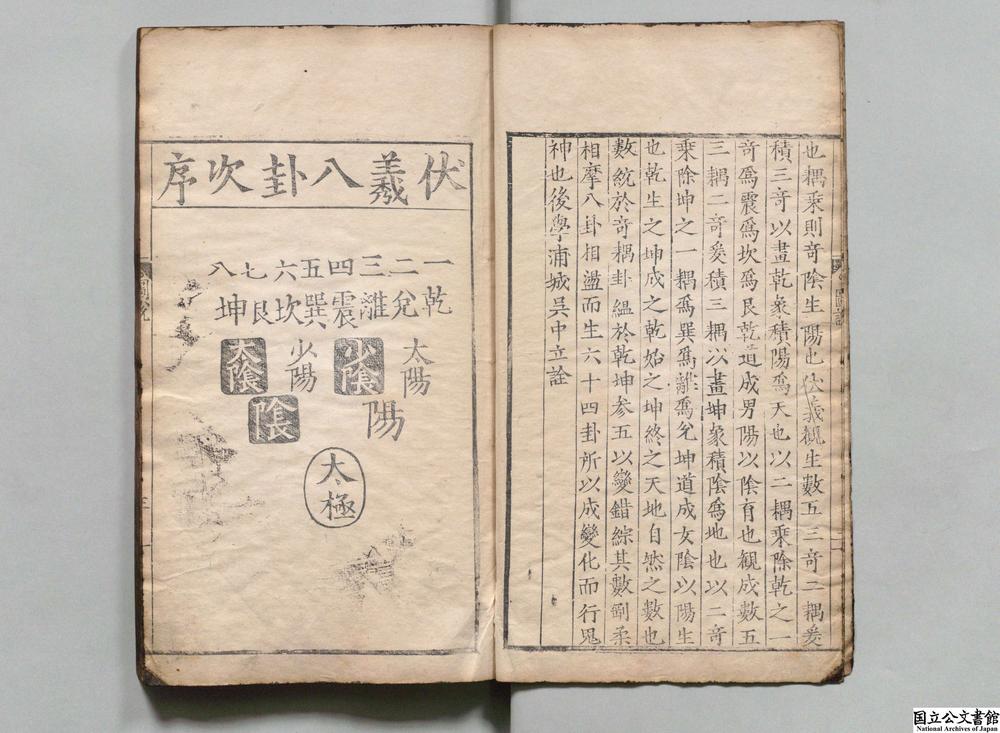 也耦乘則奇陰生陽也伏羲觀生數五三奇二耦爰
積三奇以畫乾象積陽爲天也以二耦乘除乾之一
奇爲震爲坎爲艮乾道成男陽以陰育也觀成數五
三耦二奇爰積三耦以畫坤象積陰爲地也以二奇
乘除坤之一耦爲巽爲離爲兌坤道成女陰以陽生
也乾生之坤成之乾始之坤終之天地自然之數也
數統於奇耦卦緼於乾坤参五以變錯綜其數剛柔
相摩八卦相盪而生六十四卦所以成變化而行鬼
神也後學浦城吳中立詮
伏羲八卦次序
一二三四五六七八
乾兌離震巽坎艮坤
太陽 少陰 少陽 太陰
陽 陰
太極
国立公文書館
National Archives of Japan